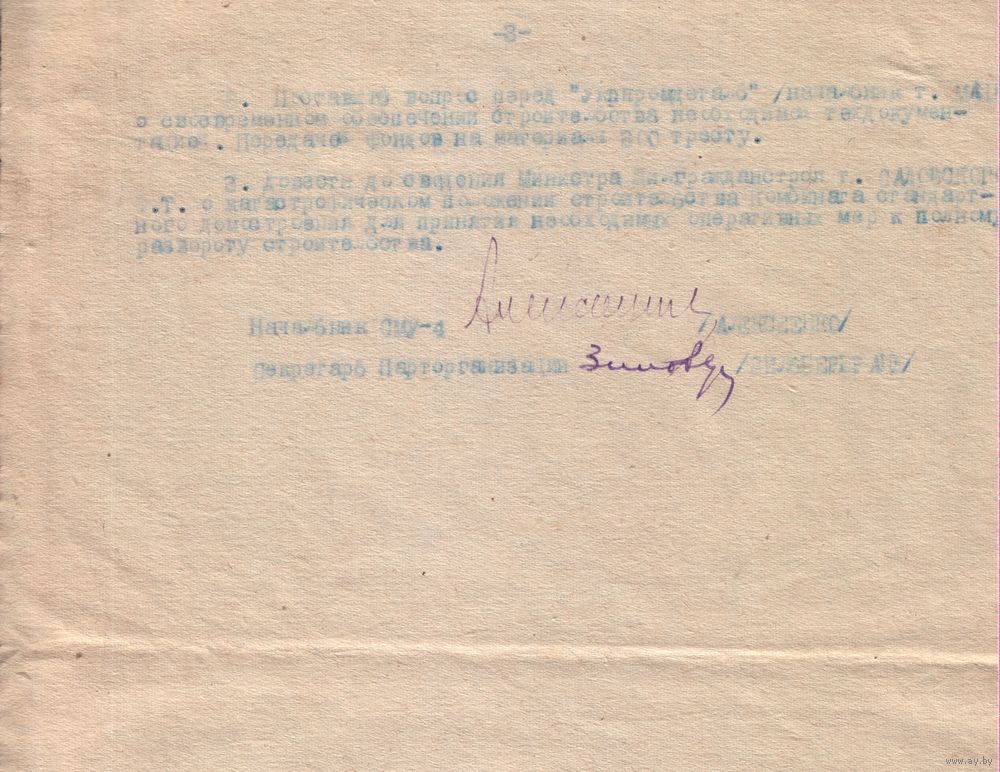 -3-
2. Поставить вопрос перед "Укрпромдеталь" /начальник т.
о своевременном обеспечении строительства необходимой техдокумен-
тацией. Передачей фондов на материалы тресту.
3. Довести до сведения Министра Жилгражданстроя т.
о катастрофическом положении строительства Комбината стандарт-
ного домостроения для принятия необходимых оперативных мер к полному
развороту строительства.
Начальник СМУ-4 /АЛЕКСЕЕНКО/
Секретарь Парторганизации
www.ay.by